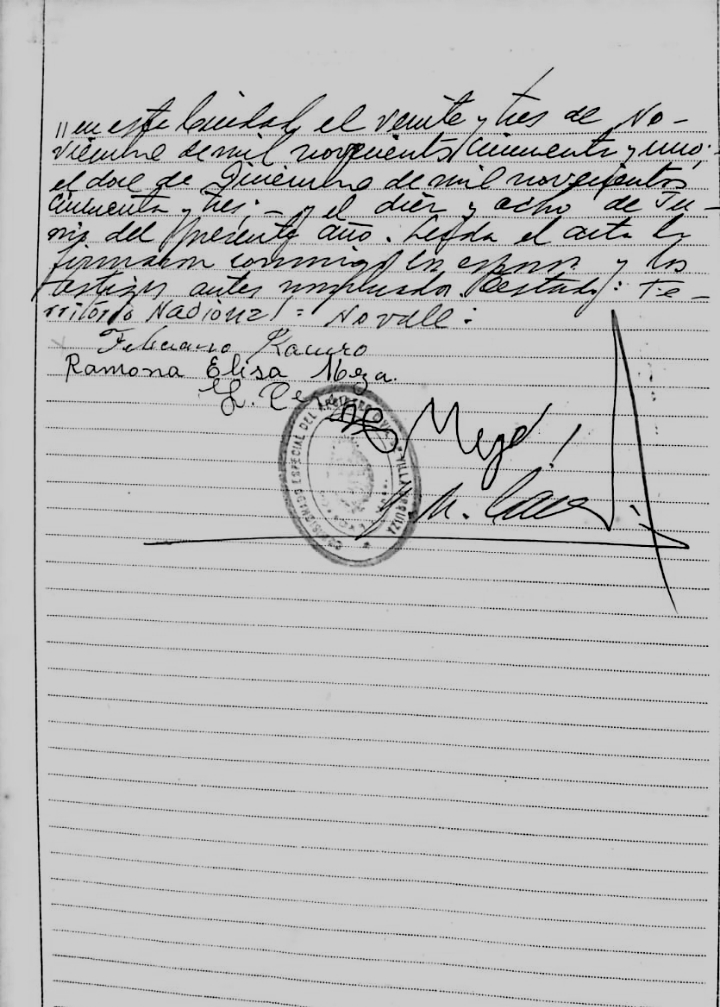 // en esta Ciudad, el veinte y tres de No-
viembre de mil novecientos cincuenta y uno;
el doce de Diciembre de mil novecientos
cincuenta y tres; - y el diez y ocho de Ju-
nio del presente año. Leída el acta la
firmaron conmigo los esposos y los
testigos antes nombrados. Testado: Te-
rritorio Nacional = No vale:
Feliciano
Ramona Elisa Meza.
Meza